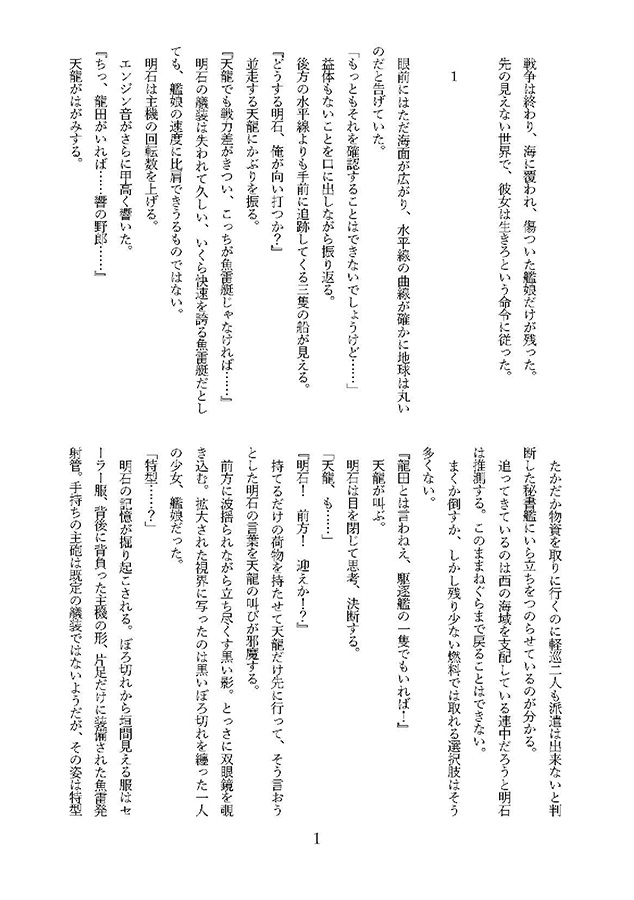 戦争は終わり、海に覆われ、傷ついた艦娘だけが残った。
先の見えない世界で、彼女は生きろという命令に従った。
1
眼前にはただ海面が広がり、水平線の曲線が確かに地球は丸い
のだと告げていた。
「もっともそれを確認することはできないでしょうけど……」
益体もないことを口に出しながら振り返る。
後方の水平線よりも手前に追跡してくる三隻の船が見える。
『どうする明石、俺が向い打つか？』
並走する天龍にかぶりを振る。
『天龍でも戦力差がきつい、こっちが魚雷艇じゃなければ……』
明石の艤装は失われて久しい、いくら快速を誇る魚雷艇だとし
ても、艦娘の速度に比肩できうるものではない。
明石は主機の回転数を上げる。
エンジン音がさらに甲高く響いた。
『ちっ、龍田がいれば……響の野郎……』
天龍がはがみする。
たかだか物資を取りに行くのに軽巡二人も派遣は出来ないと判
断した秘書艦にいら立ちをつのらせているのが分かる。
追ってきているのは西の海域を支配している連中だろうと明石
は推測する。このままねぐらまで戻ることはできない。
まくか倒すか、しかし残り少ない燃料では取れる選択肢はそう
多くない。
『龍田とは言わねえ、駆逐艦の一隻でもいれば！』
天龍が叫ぶ。
明石は目を閉じて思考、決断する。
「天龍、も……」
『明石！　前方！　迎えか！？』
持てるだけの荷物を持たせて天龍だけ先に行って、そう言おう
とした明石の言葉を天龍の叫びが邪魔する。
前方に波揺られながら立ち尽くす黒い影。とっさに双眼鏡を覗
き込む。拡大された視界に写ったのは黒いぼろ切れを纏った一人
の少女、艦娘だった。
「特型……？」
明石の記憶が掘り起こされる。ぼろ切れから垣間見える服はセ
ーラー服、背後に背負った主機の形、片足だけに装備された魚雷発
射管。手持ちの主砲は既定の艤装ではないようだが、その姿は特型
1